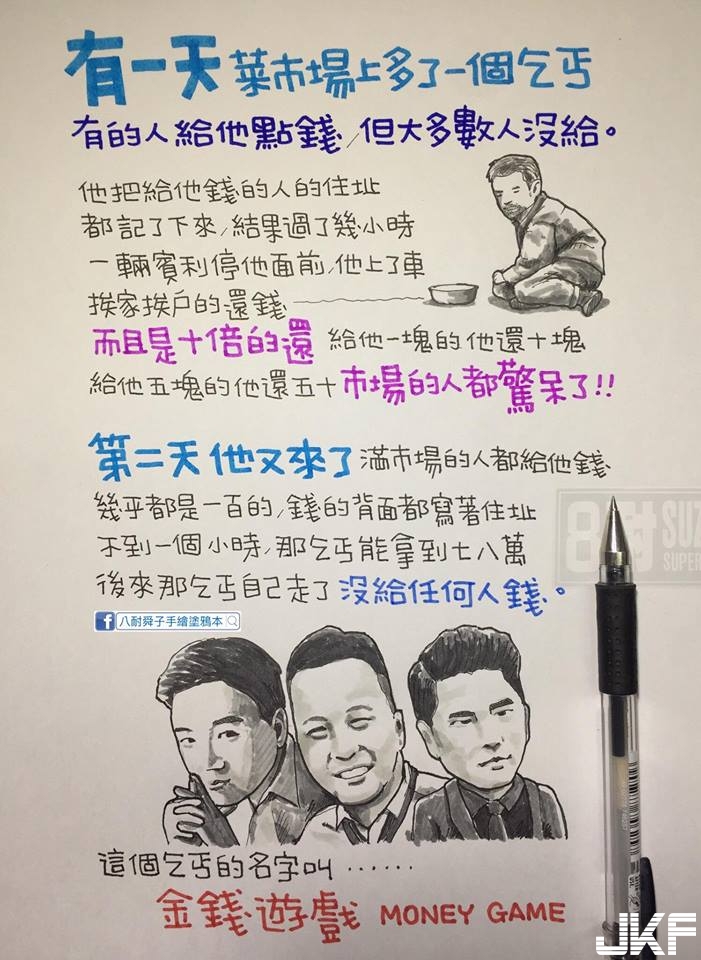 有一天 菜市場上多了一個乞丐
有的人給他點錢,但大多數人沒給。
他把給他錢的人的住址
都記了下來,結果過了幾小時
一輛賓利停他面前,他上了車
挨家挨戶的還錢
而且是十倍的還 給他一塊的他還十塊
給他五塊的他還五十 市場的人都驚呆了!!
第二天他又來了 滿市場的人都給他錢
幾乎都是一百的,錢的背面都寫著住址
不到一個小時,那乞丐能拿到七八萬
後來那乞丐自己走了 沒給任何人錢。
f 八耐舜子手繪塗鴉本
這個乞丐的名字叫……
金錢遊戲 MONEY GAME
SUZ
SUPER
JKF